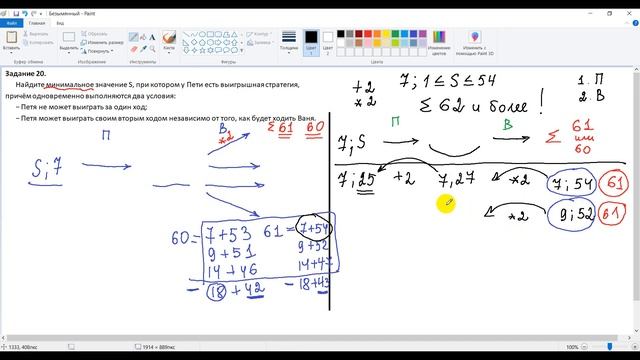 Безымянный - Paint
Файл
Главная
Вид
Вставить
Выделить
Обрезать
Изменить размер
Повернуть
Кисти
Фигуры
Контур
Заливка
Толщина
Цвет 1
Цвет 2
Изменение цветов
Изменить с помощью Paint 3D
Буфер обмена
Изображение
Инструменты
Фигуры
Цвета
Задание 20.
Найдите минимальное значение S, при котором у Пети есть выигрышная стратегия,
причём одновременно выполняются два условия:
– Петя не может выиграть за один ход;
– Петя может выиграть своим вторым ходом независимо от того, как будет ходить Ваня.
П
В
*2
Σ 61 60
S;7
60= 7+53 61= 7+54
9+51 9+52
14+46 14+47
- 18+42 - 18+43
+2
*2
7; 1≤S≤54
Σ 62 и более!
1. П
2. В
П
В
7;S
Σ 61
или
60
7;25 +2 7,27 *2 7;54 61
*2 9;52 61
1333, 408пкс
1914 × 889пкс
100%